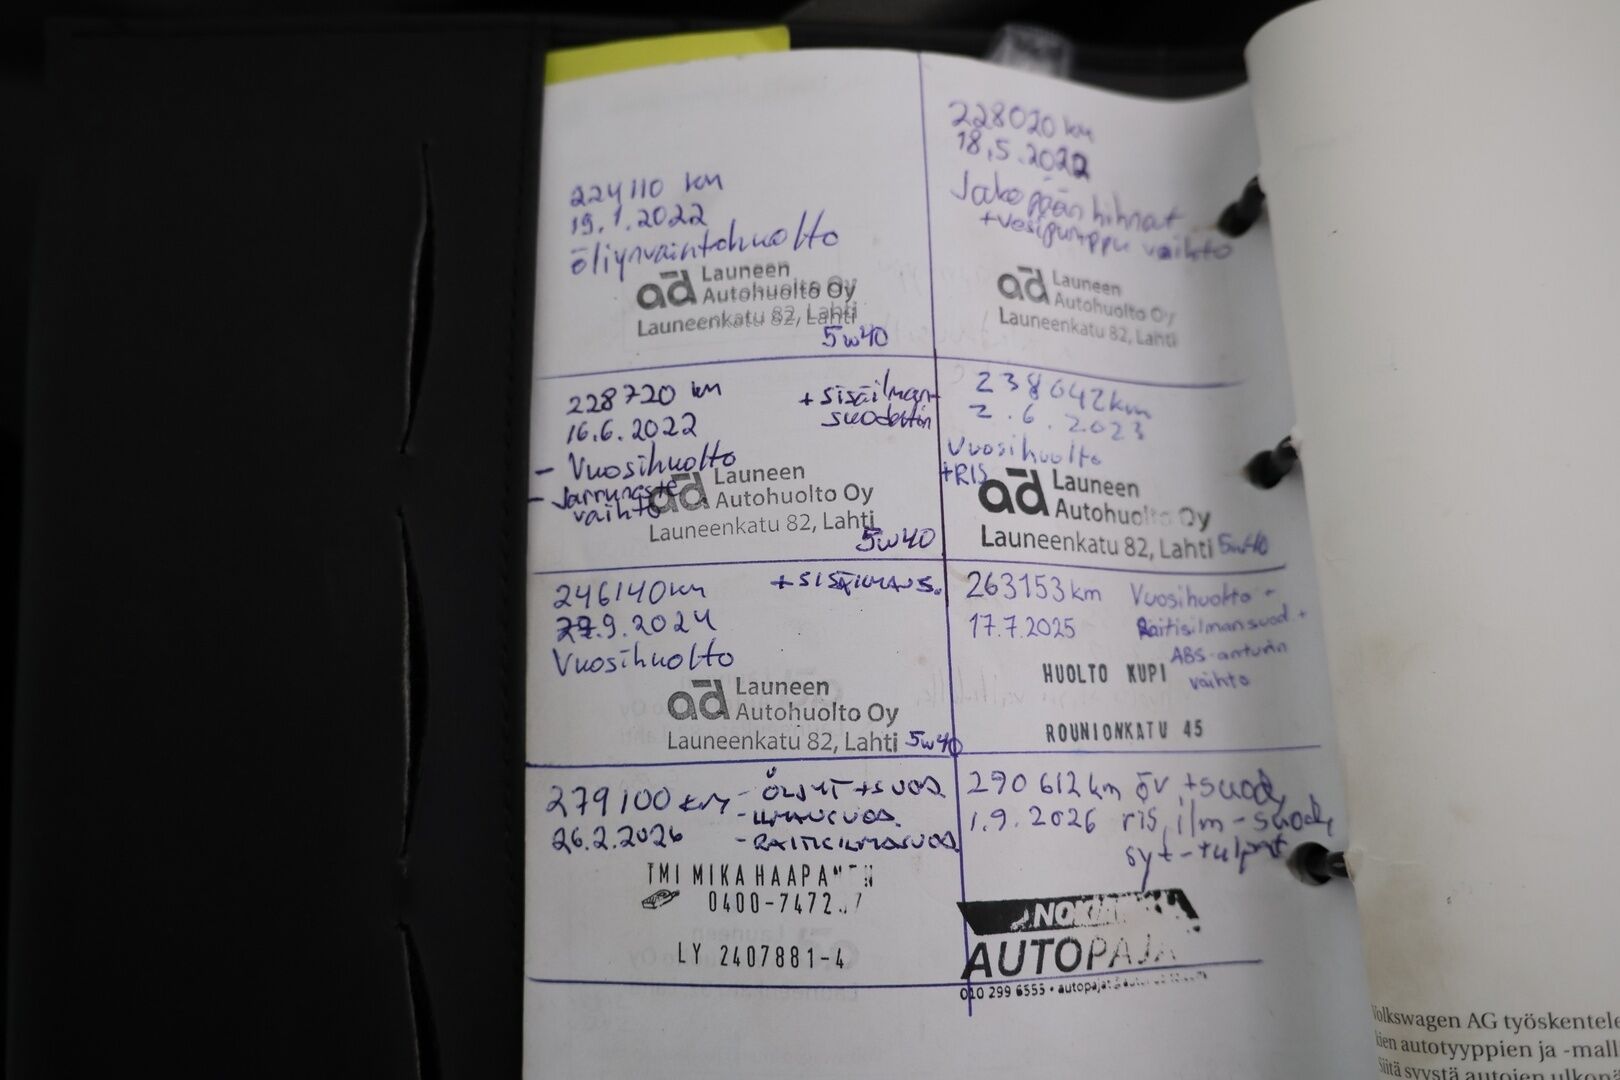 224110 km
19.1.2022
öliynvaihtohuolto
ad Launeen
Autohuolto Oy
Launeenkatu 82, Lahti
5w40
228020 km
18.5.2022
Jakopään hihnat
+vesipumppu vaihto
ad Launeen
Autohuolto Oy
Launeenkatu 82, Lahti
228720 km
16.6.2022
- Vuosihuolto
- Jarruneste
vaihto
+ sisäilman-
suodatin
ad Launeen
Autohuolto Oy
Launeenkatu 82, Lahti
5w40
238642km
2.6.2023
Vuosihuolto
+RIS
ad Launeen
Autohuolto Oy
Launeenkatu 82, Lahti
5w40
246140km
27.9.2024
Vuosihuolto
+SISÄILMANS.
ad Launeen
Autohuolto Oy
Launeenkatu 82, Lahti
5w40
263153km
17.7.2025
Vuosihuolto +
Raitisilmansuod. +
ABS-anturin
vaihto
HUOLTO KUPI
ROUNIONKATU 45
279100 KM
26.2.2026
- ÖLJYT+SUOD.
- ILMANSUOD.
- RAITISILMASUOD.
TMI MIKA HAAPA
0400-7472
LY 2407881-4
290612km öv +suod,
1.9.2026 ris, ilm-suod,
syt-tulpat
AUTOPAJA
010 299 6555 •
Volkswagen AG työskentele
kien autotyyppien ja -mall
Siitä syystä autojen ulkonä